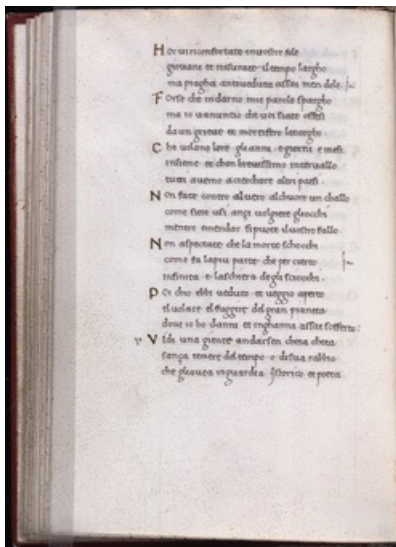 Hor vi riconfortate in vostre fole
giovani et misurate el tempo largho
ma piagha antiveduta assai men dole
Forse che indarno mie parole spargho
ma io vanuntio che voi siate offesi
da un greve et mortifero letargho
Che volano lore gli anni e giorni e mesi
insieme et chon brevissimo intervallo
tutti avemo a cerchare altri paesi.
Non fate contro al vero al chuore un challo
come siete usi anzi volgiete gliocchi
mentre emendar si puote il vostro fallo
Non aspectate che la morte schocchi
come fa la piu parte che per certo
infinita e la schiera degli sciocchi.
Poi chio ebbi veduto et veggio aperto
el volare el fuggire del gran pianeta
dove io ho danni et inghanni assai sofferto
Vidi una giente andarsen cheta cheta
sanza temere del tempo o di sua rabbia
che gli avea in guardia storico et poeta